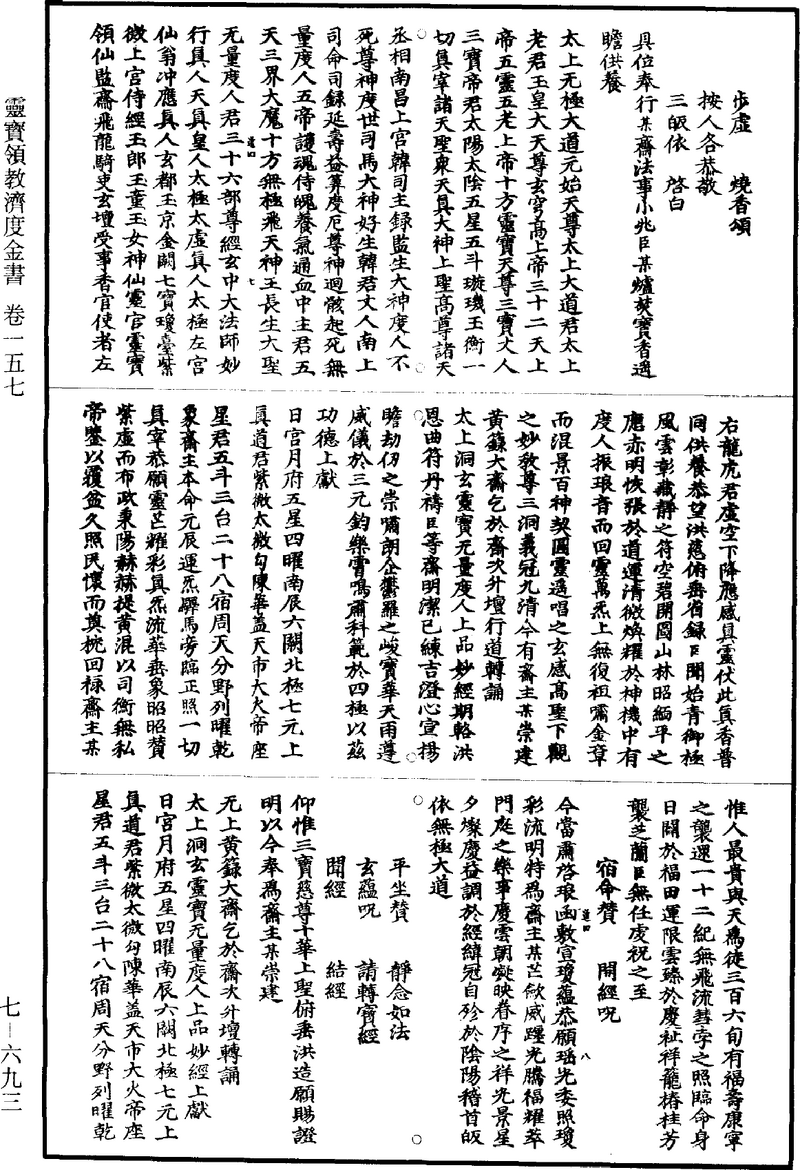 靈寶領教濟度金書　卷一五七
七—六九三
步虛　燒香頌
按人各恭敬
三皈依　啓白
具位奉行某齋法事小兆臣某爐焚寶香遍
瞻供養
太上无極大道元始天尊太上大道君太上
老君玉皇大天尊玄穹高上帝三十二天上
帝五靈五老上帝十方靈寶天尊三寶丈人
三寶帝君太陽太陰五星五斗璇璣玉衡一
切真宰諸天聖衆天真大神上聖高尊諸天
丞相南昌上宮韓司主録監生大神度人不
死尊神度世司馬大神好生韓君丈人南上
司命司録延壽益算度厄尊神迴骸起死無
量度人五帝護魂侍魄養氣通血中主君五
天三界大魔十方無極飛天神王長生大聖
无量度人君三十六部尊經玄中大法師妙
行真人天真皇人太極太虛真人太極左宮
仙翁冲應真人玄都玉京金闕七寶瓊臺紫
微上宮侍經玉郎玉童玉女神仙靈官靈寶
領仙監齋飛龍騎吏玄壇受事香官使者左
右龍虎君虛空下降應感真靈仗此真香普
同供養恭望洪慈俯垂省録臣聞始青御極
風雲彰藏靜之符空碧開圖山林昭緬平之
應赤明恢張於道運清微煥耀於神機中有
度人振琅音而回靈萬炁上無復祖嘯金章
而混景百神契圓靈遥唱之玄感高聖下觀
之妙教尊三洞義冠九清今有齋主某崇建
黄籙大齋乞於齋次升壇行道轉誦
太上洞玄靈寶无量度人上品妙經期輅洪
恩曲符丹禱臣等齋明潔已練吉澄心宣揚
瞻劫仞之崇嘯朗企鬱羅之峻寶華天雨遵
威儀於三元鈞樂雷鳴肅科範於四極以兹
功德上獻
日宮月府五星四曜南辰六關北極七元上
真道君紫微太微勾陳華蓋天市大火帝座
星君五斗三台二十八宿周天分野列曜乾
象齋主本命元辰運炁驛馬旁臨正照一切
真宰恭願靈芒耀彩真炁流華垂象昭昭贊
紫虛而布政秉陽赫赫提黄混以司衡無私
帝鑒以覆盆久照民懷而奠梡回禄齋主某
惟人最貴與天爲徒三百六旬有福壽康寧
之襲運一十二紀無飛流彗孛之照臨命身
日關於福田運限雲臻於慶祉祥籠椿桂芳
襲芝蘭臣無任虔祝之至
宿命贊　開經呪
今當肅啓琅函敷宣瓊藴恭願瑶光委照瓊
彩流明特爲齋主某芒歛威躔光騰福耀萃
門庭之樂事慶雲朝煥映眷序之祥光景星
夕燦慶益調於經緯冠自殄於陰陽稽首皈
依無極大道
平坐贊　靜念如法
玄藴呪　請轉寶經
開經　結經
仰惟三寶慈尊十華上聖俯垂洪造願賜證
明以今奉爲齋主某崇建
无上黄籙大齋乞於齋次升壇轉誦
太上洞玄靈寶无量度人上品妙經上獻
日宮月府五星四曜南辰六關北極七元上
真道君紫微太微勾陳華蓋天市大火帝座
星君五斗三台二十八宿周天分野列曜乾